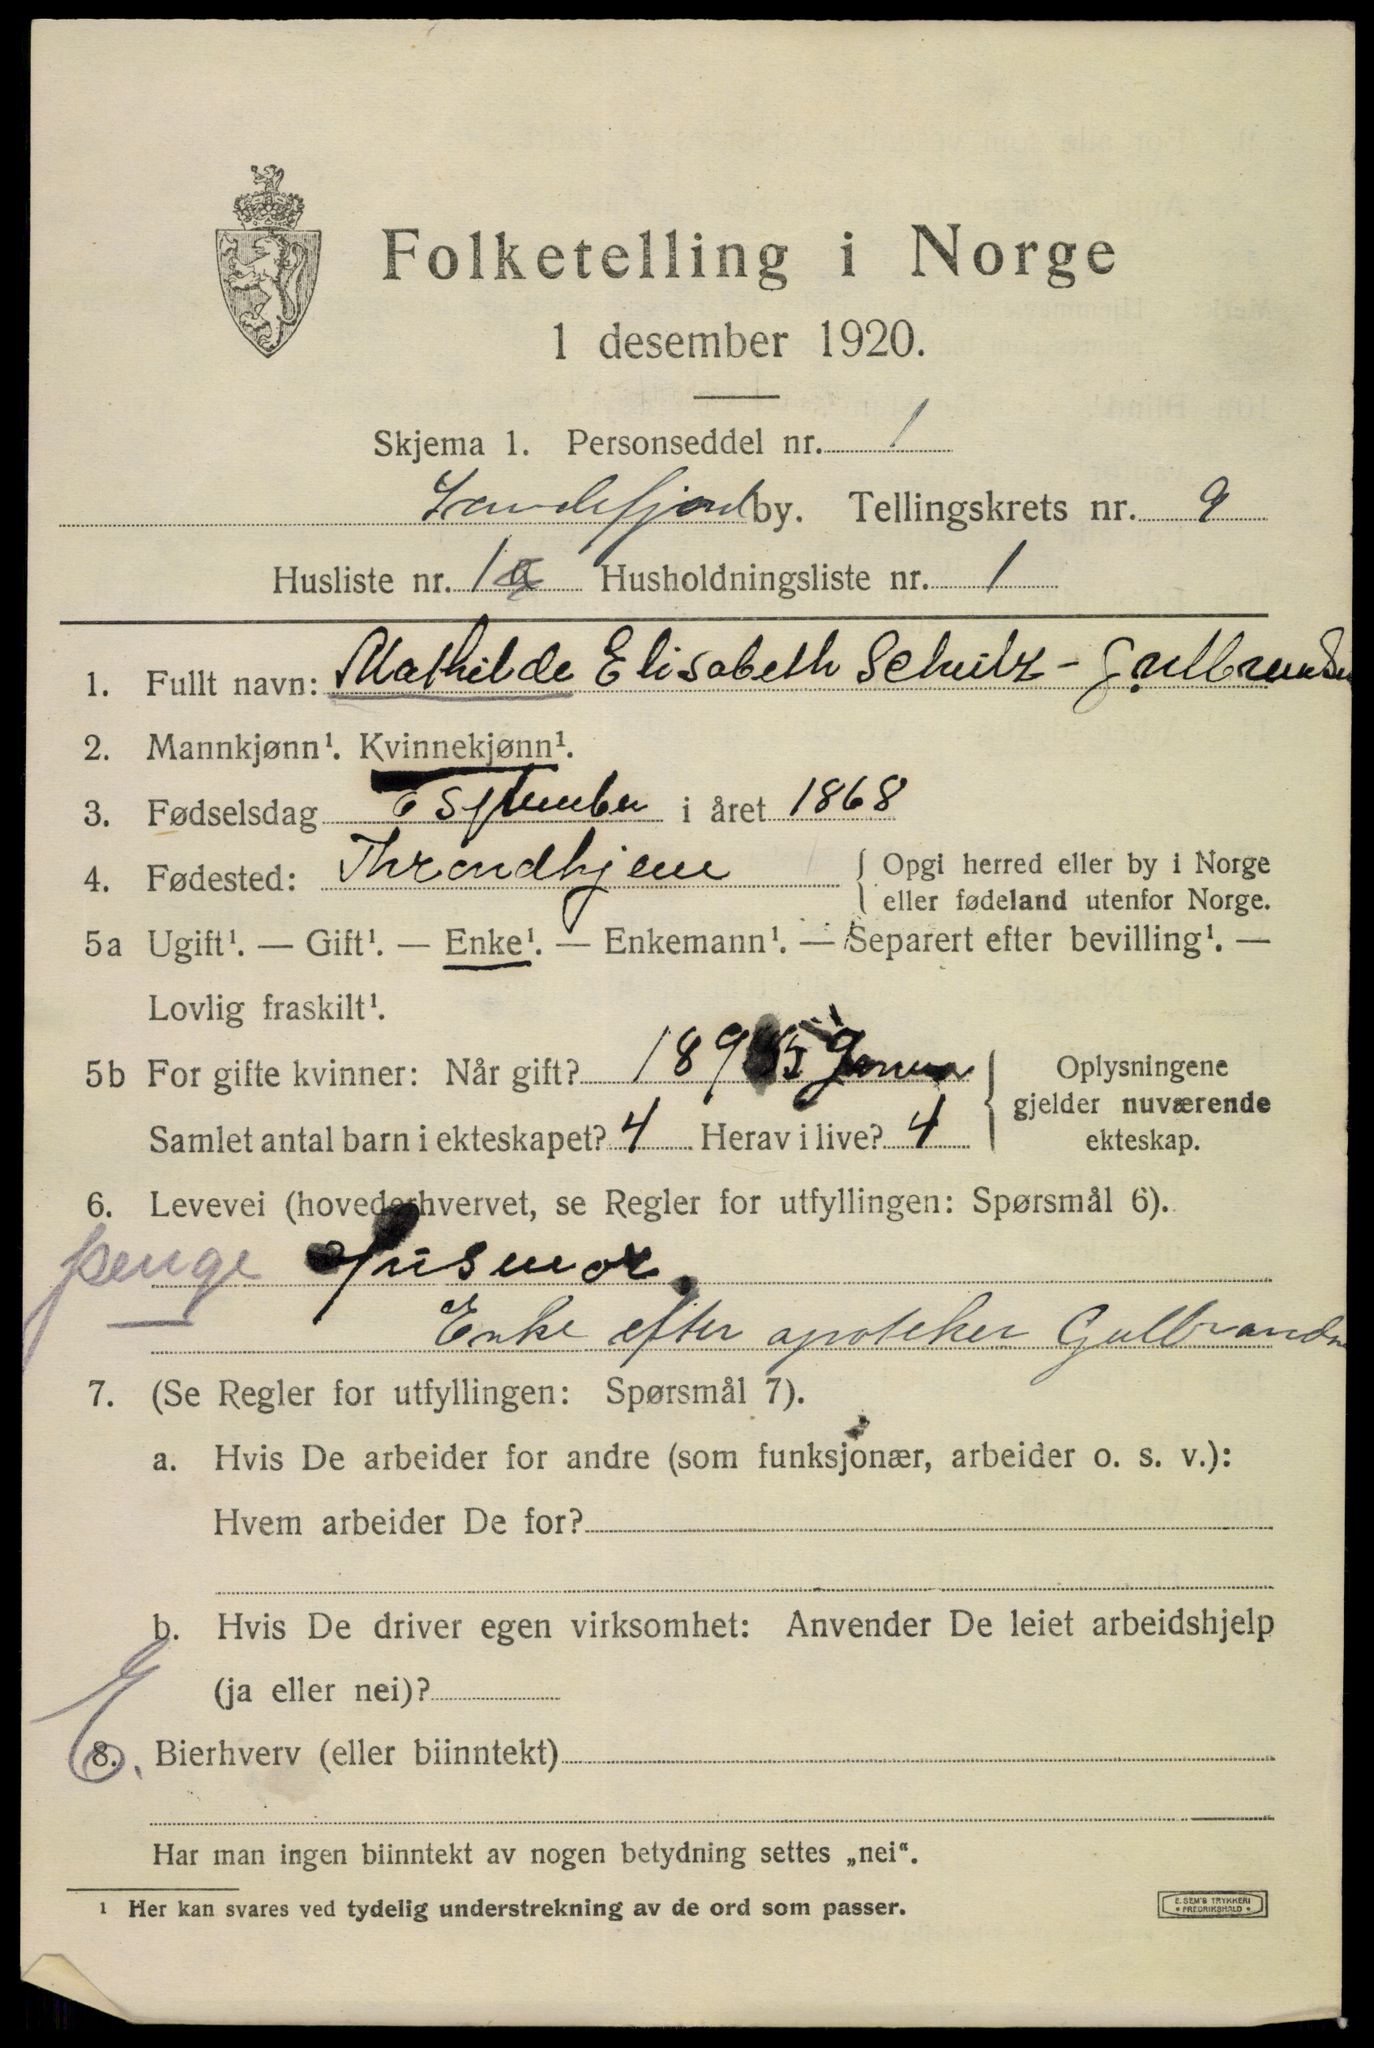 Folketelling i Norge
1 desember 1920.
Skjema 1. Personseddel nr. 1
Sandefjord by. Tellingskrets nr. 9
Husliste nr. 1a Husholdningsliste nr. 1
1. Fullt navn: Mathilde Elisabeth Schultz - Gulbrandsen
2. Mannkjønn¹. Kvinnekjønn¹.
3. Fødselsdag 6 September i året 1868
4. Fødested: Throndhjem { Opgi herred eller by i Norge
eller fødeland utenfor Norge.
5a Ugift¹. — Gift¹. — Enke¹. — Enkemann¹. — Separert efter bevilling¹. —
Lovlig fraskilt¹.
5b For gifte kvinner: Når gift? 189 { Oplysningene
gjelder nuværende
Samlet antal barn i ekteskapet? 4 Herav i live? 4 ekteskap.
6. Levevei (hovederhvervet, se Regler for utfyllingen: Spørsmål 6).
penge Husmor.
Enke efter apoteker Gulbrandsen
7. (Se Regler for utfyllingen: Spørsmål 7).
a. Hvis De arbeider for andre (som funksjonær, arbeider o. s. v.):
Hvem arbeider De for?
b. Hvis De driver egen virksomhet: Anvender De leiet arbeidshjelp
(ja eller nei)?
8. Bierhverv (eller biinntekt)
Har man ingen biinntekt av nogen betydning settes „nei“.
¹ Her kan svares ved tydelig understrekning av de ord som passer.
E. SEM'S TRYKKERI
• FREDRIKSHALD •